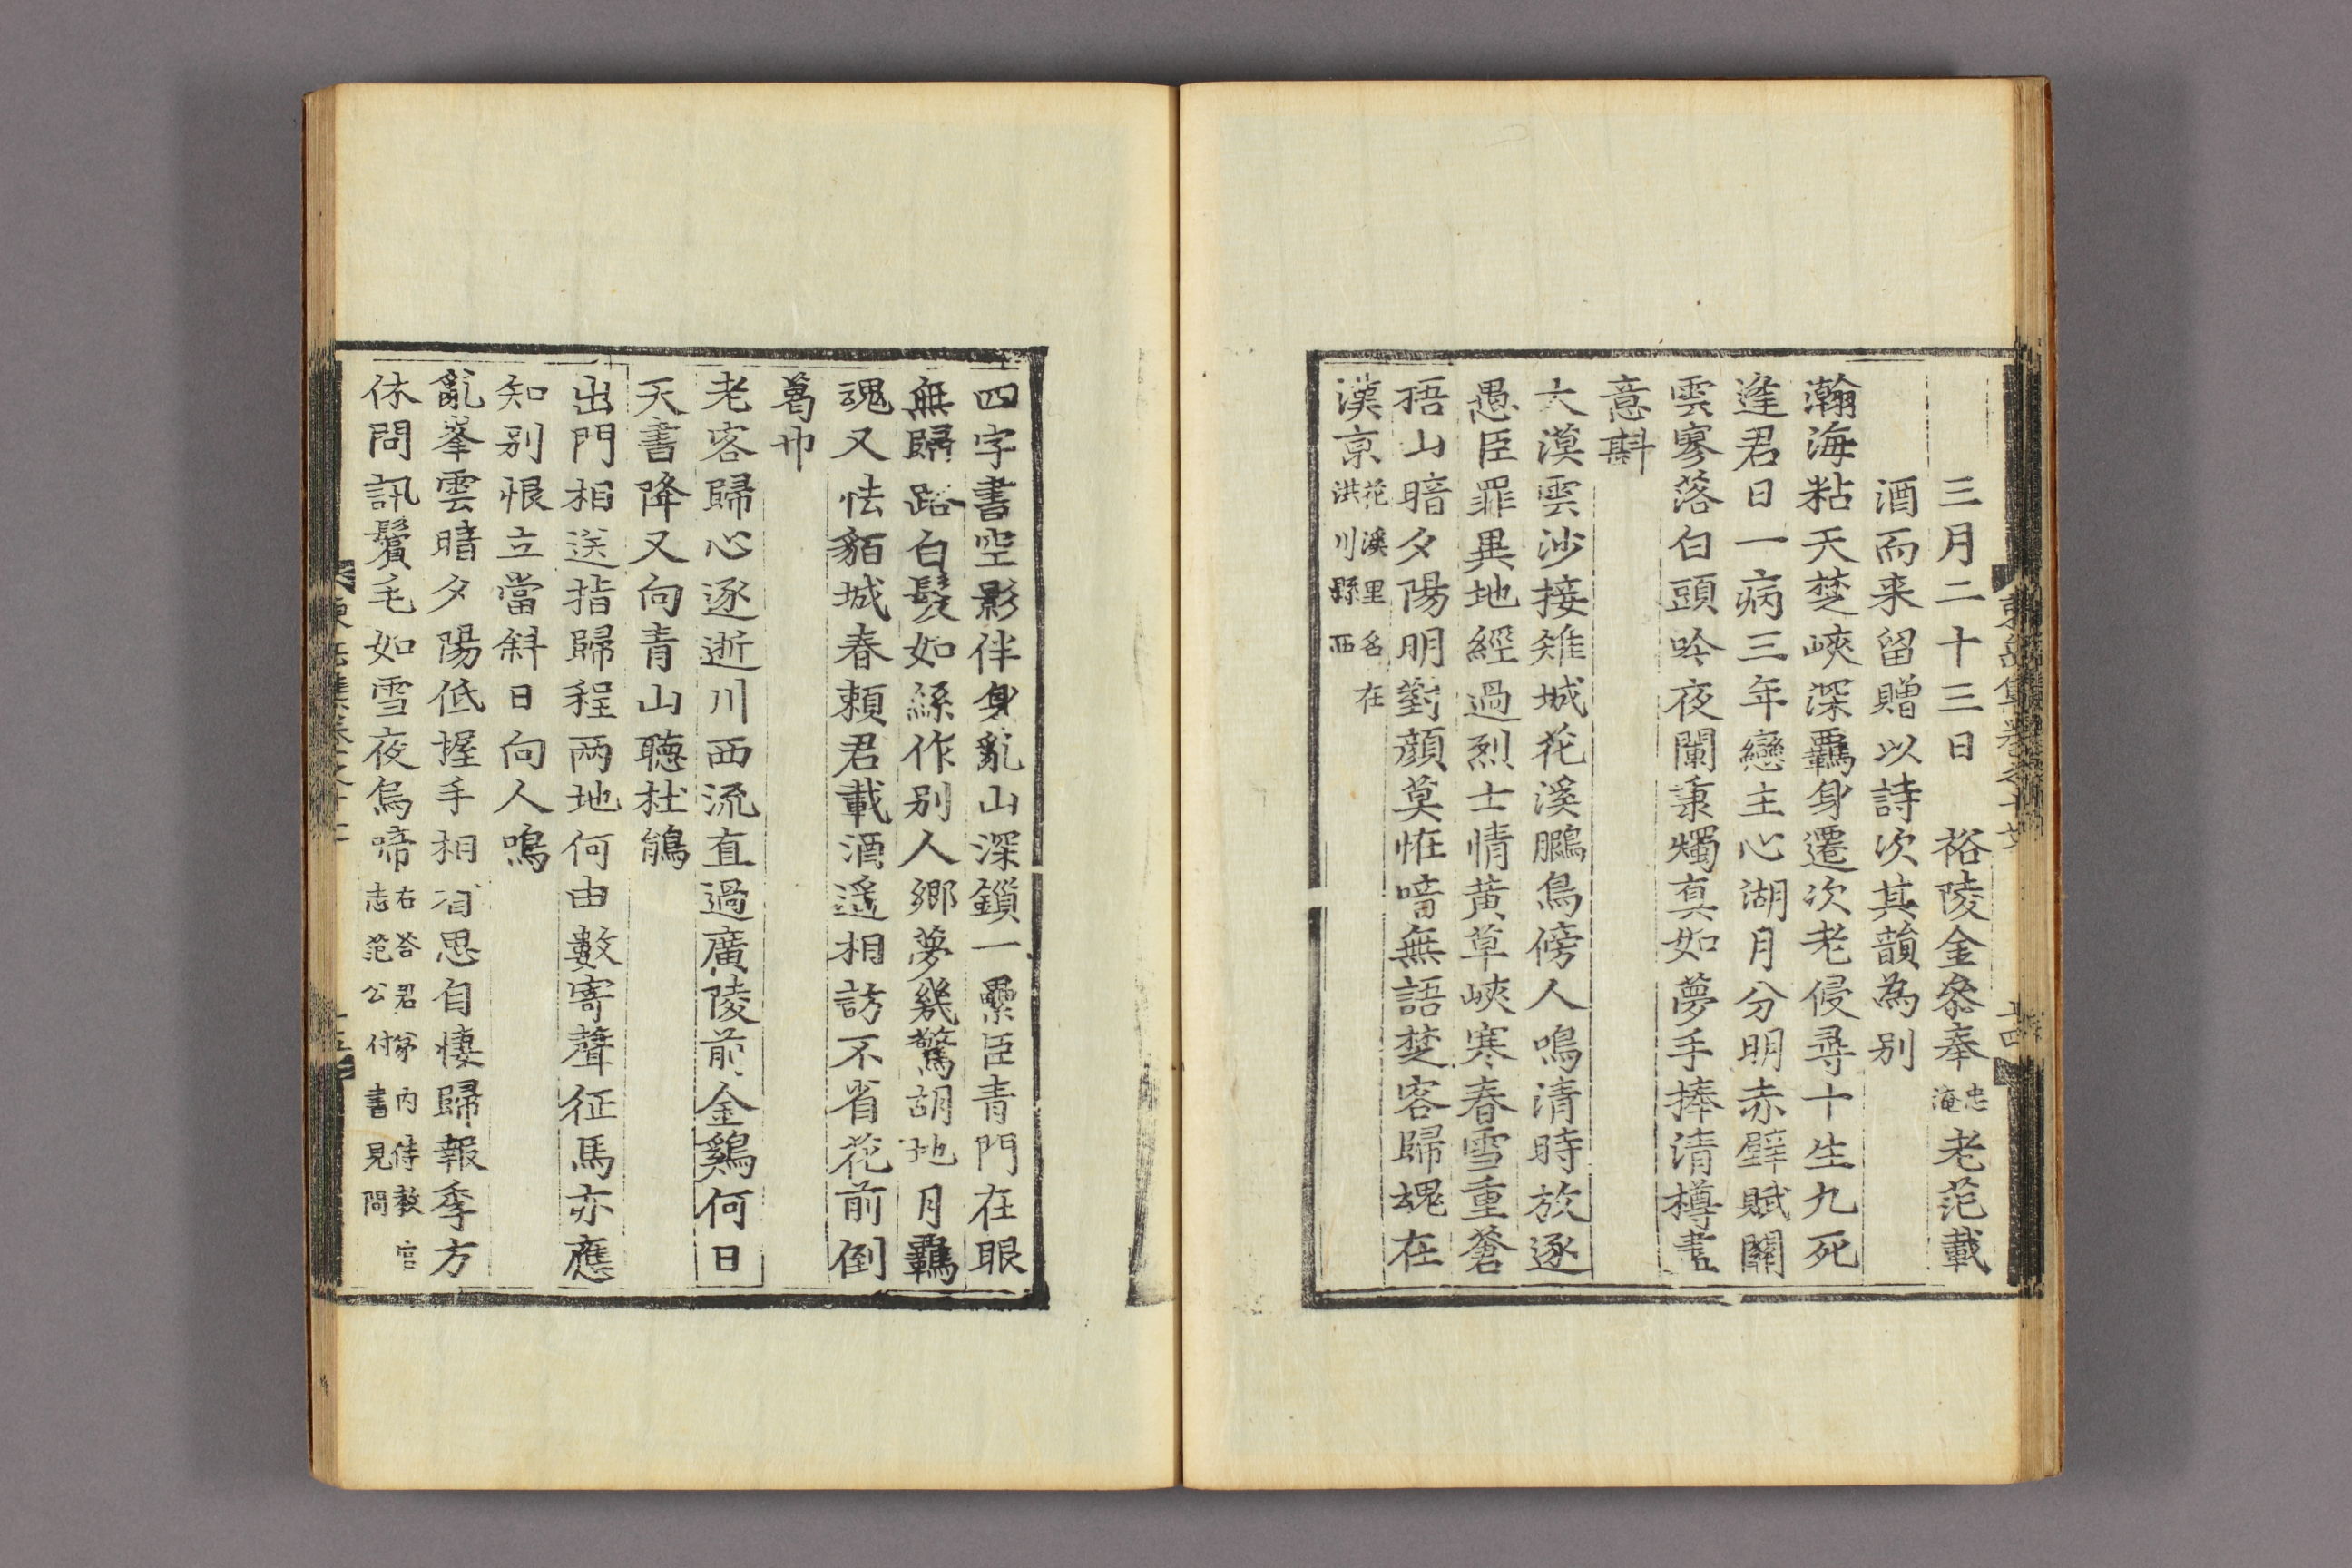 三月二十三日　裕陵金叅奉忠淹老范載
酒而来留贈以詩次其韻為別
瀚海粘天楚峽深羈身遷次老侵尋十生九死
逢君日一病三年戀主心湖月分明赤壁賦關
雲寥落白頭吟夜闌秉燭真如夢手捧清樽書
意斟
大漠雲沙接雉城花溪鵬鳥傍人鳴清時放逐
愚臣罪異地經過烈士情黄草峽寒春雪重蒼
梧山暗夕陽明對顔莫恠喑無語楚客歸魂在
漢京花溪里名在洪川縣西
四字書空影伴身亂山深鎖一纍臣青門在眼
無歸路白髮如絲作别人鄉夢幾驚胡地月羈
魂又怯貊城春頼君載酒遥相訪不省花前倒
葛巾
老客歸心逐逝川西流直過廣陵前金鷄何日
天書降又向青山聴杜鵑
出門相送指歸程兩地何由數寄聲征馬亦應
知别恨立當斜日向人鳴
亂峯雲暗夕陽低握手相看思自悽歸報季方
休問訊鬢毛如雪夜烏啼右荅君弟内侍教官志范公付書見問